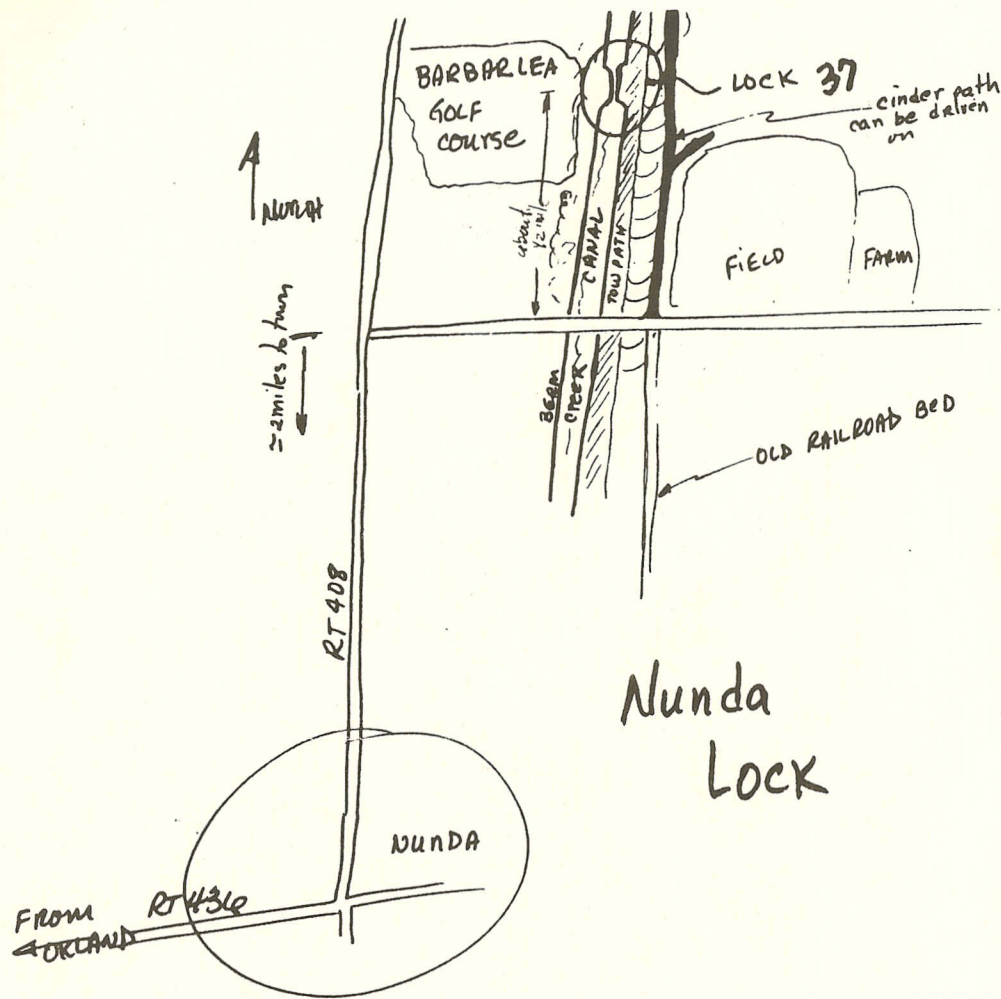 BARBARLEA
GOLF
course
LOCK 37
cinder path
can be driven
on
NORTH
about
1/2 mile
CANAL
TOW PATH
FIELD
FARM
≈ 2 miles to town
BERM
CREEK
OLD RAILROAD BED
RT 408
Nunda
Lock
NUNDA
RT 436
FROM
ORLAND